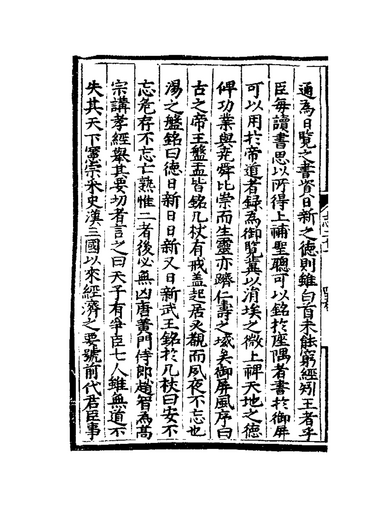 適為日覽之書資日新之德則雖白首未能窮經矧王者乎
臣每讀書思以所得上補聖聰可以銘於座隅者書於御屏
可以用於帝道者錄為御覽冀以涓埃之微上裨天地之德
俾功業與堯舜比崇而生靈亦躋仁壽之域矣御屏風序曰
古之帝王盤盂皆銘几杖有戒蓋起居必觀而夙夜不忘也
湯之盤銘曰德日新日日新又日新武王銘於几杖曰安不
忘危存不忘亡熟惟二者後必無凶唐黃門侍郎趙智為高
宗講孝經舉其要切者言之曰天子有爭臣七人雖無道不
失其天下憲宗采史漢三國以來經濟之要號前代君臣事